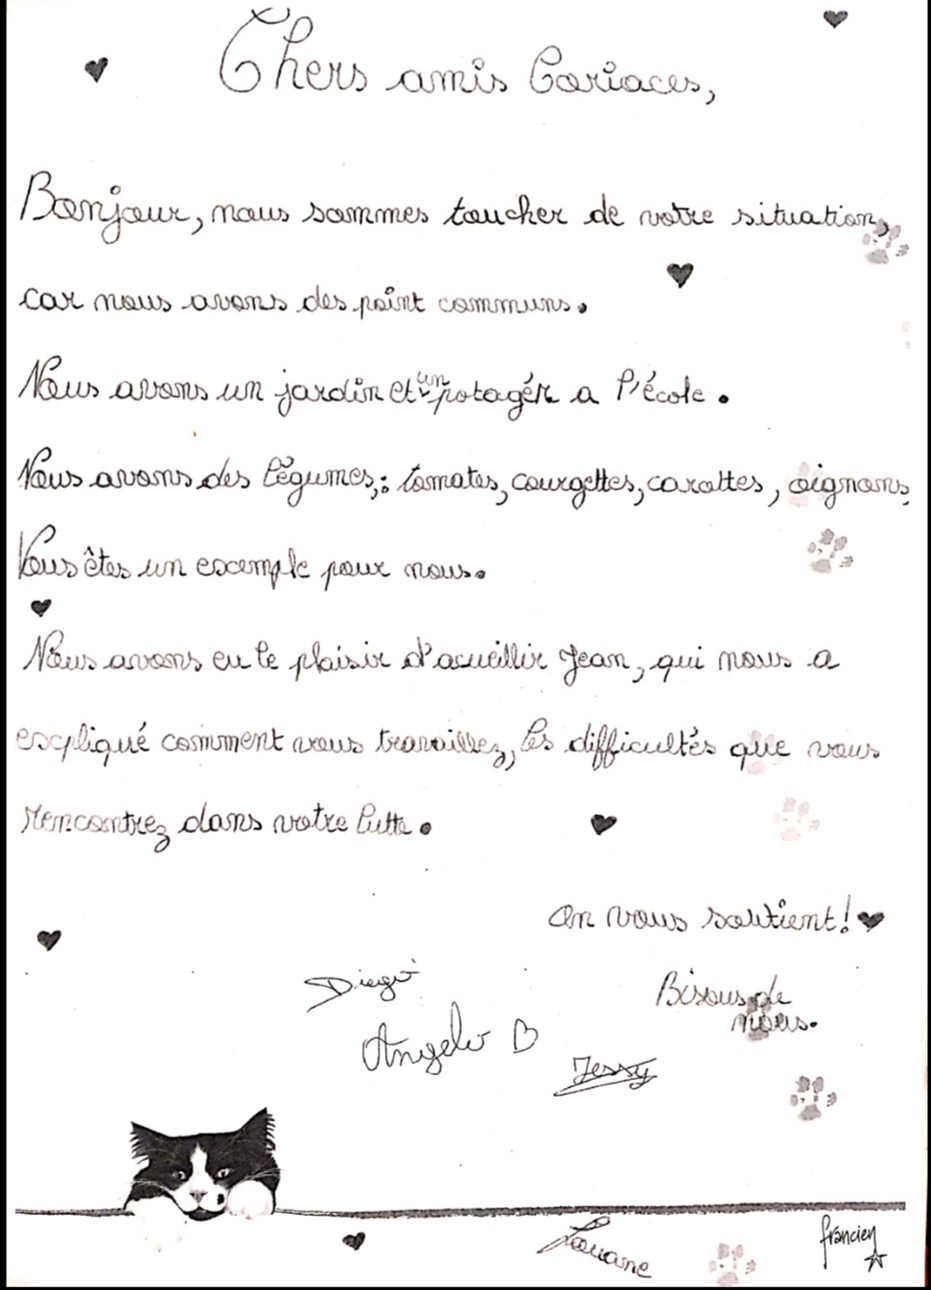 Chers amis Coriaces,
Bonjour, nous sommes toucher de votre situation,
car nous avons des point communs.
Nous avons un jardin et un potagér a l'école.
Nous avons des légumes,: tomates, courgettes, carottes, oignons,
Vous êtes un exemple pour nous.
Nous avons eu le plaisir d'acueillir Jean, qui nous a
expliqué comment vous travaillez, les difficultés que vous
rencontrez dans votre lutte.
on vous soutient!
Bisous de
nous.
Diego
Angelo
Jessy
Louane
francien